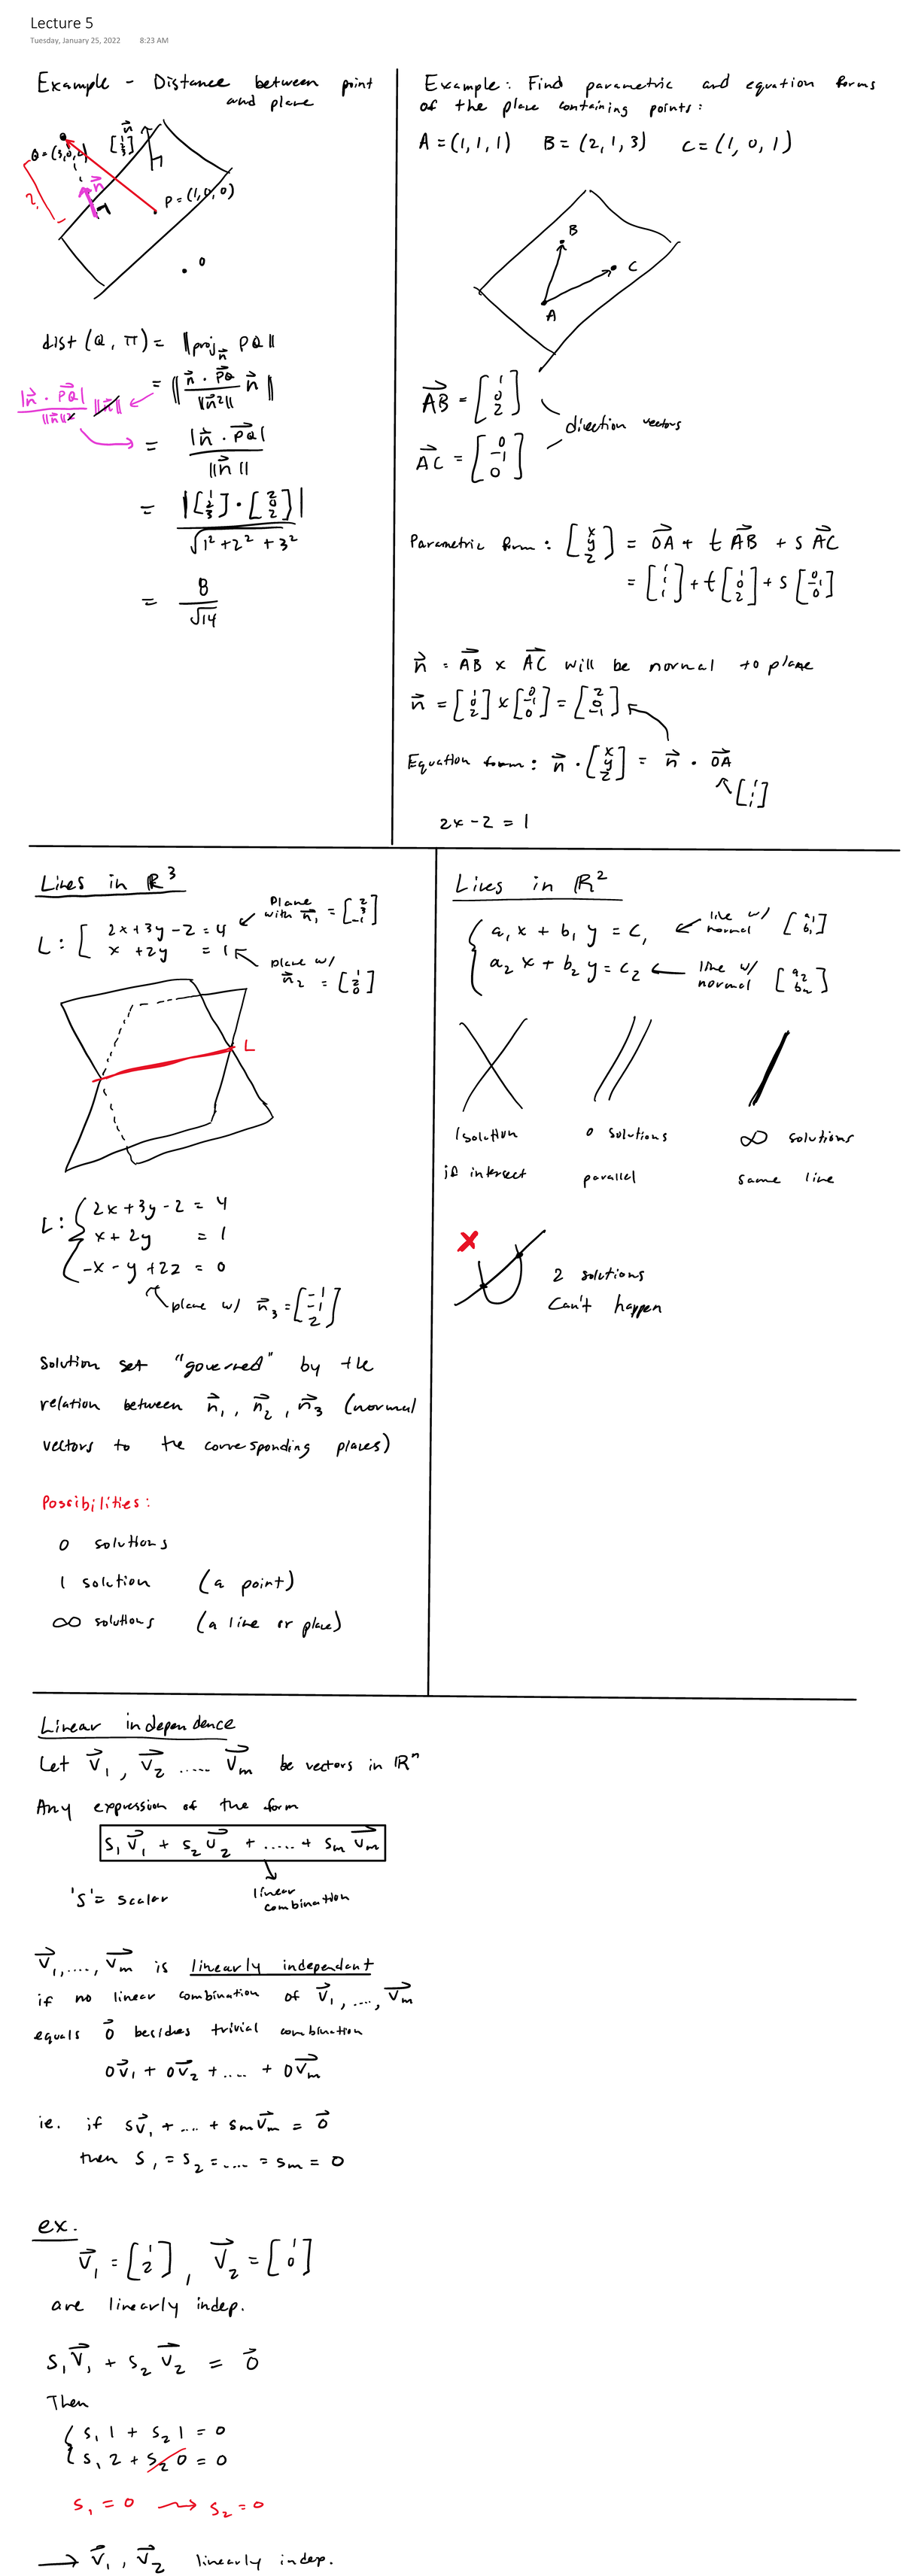 Lecture 5
Tuesday, January 25, 2022 8:23 AM
Example - Distance between point
and plane
Q = (3,0,2)
[1 2 3]
n⃗
n⃗
P = (1,0,0)
2
0
dist (Q, π) = ||proj_n⃗ PQ||
= || n⃗ · PQ⃗ / ||n⃗²|| n⃗ ||
|n⃗ · PQ⃗| / ||n⃗||² ||n⃗||
= |n⃗ · PQ⃗| / ||n⃗||
= |[1 2 3] · [2 0 2]| / √(1² + 2² + 3²)
= 8 / √14
Example: Find parametric and equation forms
of the plane containing points:
A = (1, 1, 1) B = (2, 1, 3) C = (1, 0, 1)
B
C
A
AB⃗ = [1 0 2]
direction vectors
AC⃗ = [0 -1 0]
Parametric form: [x y z] = OA⃗ + t AB⃗ + s AC⃗
= [1 1 1] + t [1 0 2] + s [0 -1 0]
n⃗ = AB⃗ × AC⃗ will be normal to plane
n⃗ = [1 0 2] × [0 -1 0] = [2 0 -1]
Equation form: n⃗ · [x y z] = n⃗ · OA⃗
[1 1 1]
2x - z = 1
Lines in ℝ³
L: [ 2x + 3y - z = 4
x + 2y = 1
Plane
with n⃗₁ = [2 3 -1]
plane w/
n⃗₂ = [1 2 0]
L
L: { 2x + 3y - z = 4
x + 2y = 1
-x - y + 2z = 0
plane w/ n⃗₃ = [-1 -1 2]
Solution set "governed" by the
relation between n⃗₁, n⃗₂, n⃗₃ (normal
vectors to the corresponding planes)
Possibilities:
0 solutions
1 solution (a point)
∞ solutions (a line or plane)
Lines in ℝ²
{ a₁ x + b₁ y = c₁ ← line w/ normal [a₁ b₁]
a₂ x + b₂ y = c₂ ← line w/ normal [a₂ b₂]
1 solution 0 solutions ∞ solutions
if intersect parallel same line
X
2 solutions
Can't happen
Linear independence
Let v⃗₁, v⃗₂ ..... v⃗m be vectors in ℝⁿ
Any expression of the form
s₁ v⃗₁ + s₂ v⃗₂ + ..... + sm v⃗m
's' = scalar
linear
combination
v⃗₁, ...., v⃗m is linearly independent
if no linear combination of v⃗₁, ...., v⃗m
equals 0⃗ besides trivial combination
0v⃗₁ + 0v⃗₂ + .... + 0v⃗m
ie. if sv⃗₁ + .... + smv⃗m = 0⃗
then s₁ = s₂ = .... = sm = 0
ex.
v⃗₁ = [1 2], v⃗₂ = [1 0]
are linearly indep.
s₁v⃗₁ + s₂ v⃗₂ = 0⃗
Then
{ s₁ 1 + s₂ 1 = 0
s₁ 2 + s₂ 0 = 0
s₁ = 0 → s₂ = 0
→ v⃗₁, v⃗₂ linearly indep.